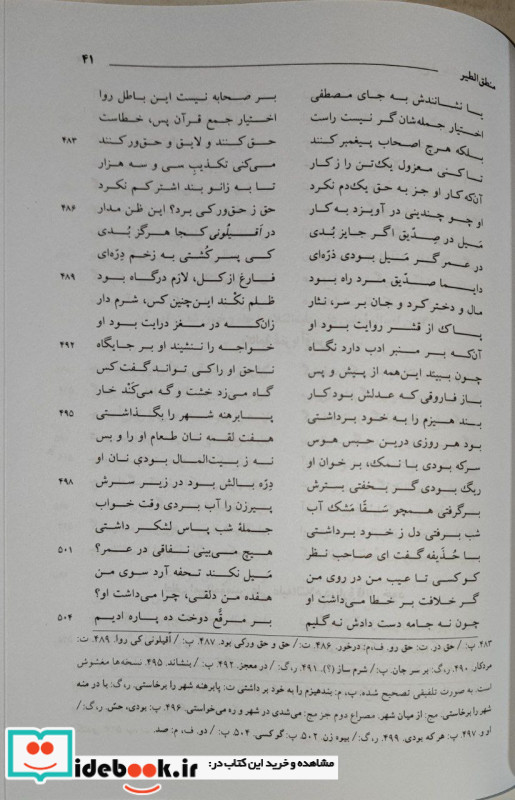 منطق‌الطیر
۴۱
یا نشانندش به جای مصطفی بر صحابه نیست این باطل روا
اختیار جمله‌شان گر نیست راست اختیار جمع قرآن پس، خطاست
بلکه هرچ اصحاب پیغمبر کنند حق کنند و لایق و حق‌ور کنند ۴۸۳
تا کنی معزول یک‌تن را ز کار می‌کنی تکذیبِ سی و سه هزار
آن‌که کار او جز به حق یک‌دم نکرد تا به زانو بند اشتر کم نکرد
او چو چندینی در آویزد به کار حق ز حق‌ور کی برد؟ این ظن مدار ۴۸۶
مَیل در صِدّیق اگر جایز بُدی در اَقیلونی کجا هرگز بُدی
در عمر گر مَیل بودی ذرّه‌ای کی پسر کُشتی به زخم دِرّه‌ای
دایما صدّیق مرد راه بود فارغ از کل، لازم درگاه بود ۴۸۹
مال و دختر کرد و جان بر سر، نثار ظلم نکْند این‌چنین کس، شرم دار
پاک از قشر روایت بود او زان‌که در مغز درایت بود او
آن‌که بر منبر ادب دارد نگاه خواجه را ننشیند او بر جایگاه ۴۹۲
چون ببیند این‌همه از پیش و پس ناحق او را کی تواند گفت کس
باز فاروقی که عدلش بود کار گاه می‌زد خشت و گه می‌کَنْد خار
بند هیزم را به خود برداشتی پابرهنه شهر را بگذاشتی ۴۹۵
بود هر روزی درین حبس هوس هفت لقمه نان طعام او را و بس
سرکه بودی با نمک، بر خوان او نه ز بیت‌المال بودی نان او
ریگ بودی گر بخفتی بسترش دِرّه بالش بود در زیر سرش ۴۹۸
برگرفتی همچو سَقّا مَشک آب پیرزن را آب بردی وقت خواب
شب برفتی دل ز خود برداشتی جملهٔ شب پاس لشکر داشتی
با حُذَیفه گفت ای صاحب نظر هیچ می‌بینی نفاقی در عمر؟ ۵۰۱
کو کسی تا عیب من در روی من مَیل نکند تحفه آرد سوی من
گر خلافت بر خطا می‌داشت او هفده من دلقی، چرا می‌داشت او؟
چون نه جامه دست دادش نه گلیم بر مرقّع دوخت ده پاره ادیم ۵۰۴
۴۸۳ پ: / حق در. ت: حق رو. ف، م: درخور. ۴۸۶. ت: / حق و حق ورکی بود. ۴۸۷. پ: / اُقیلونی کی روا. ۴۸۹. ت:
مردکار. ۴۹۰. ر، گ: بر سر جان. پ: / شرم ساز (؟). ۴۹۱. ر، گ: / در معجز. ۴۹۲. پ: / بنشاند. ۴۹۵. نسخه‌ها مغشوش
است. به صورت تلفیقی تصحیح شده: پ، م: بندهیزم را به خود بر داشتی ت: پابرهنه شهر را برخاستی. ر، گ: با در منه
شهر را برخاستی. مج: از میان شهر. مصراع دوم جز مج: می‌شدی در شهر و ره می‌خواستی. ۴۹۶. پ: بودی، حش. ر، گ: /
او و ۴۹۷ پ: هر که بودی. ۴۹۹. ر، گ: / بیوه زن. ۵۰۲ پ: گوکسی. ۵۰۴ پ: / دو. ف، م: صد.
مشاهده و خرید این کتاب در:
idebook.ir